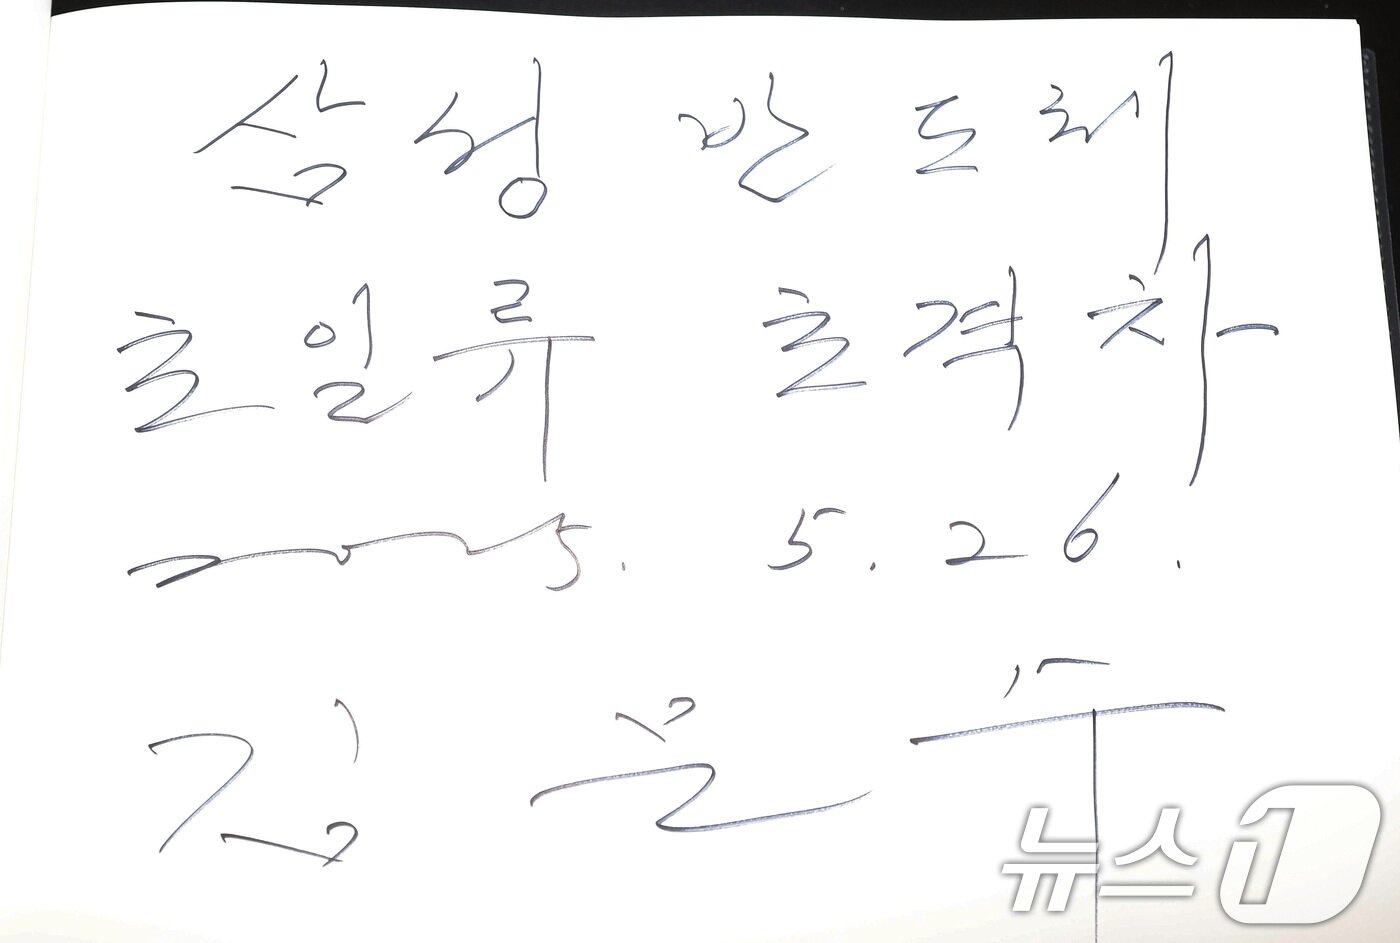 삼성 반도체
초일류 초격차
2025. 5. 26.
김문수
뉴스1